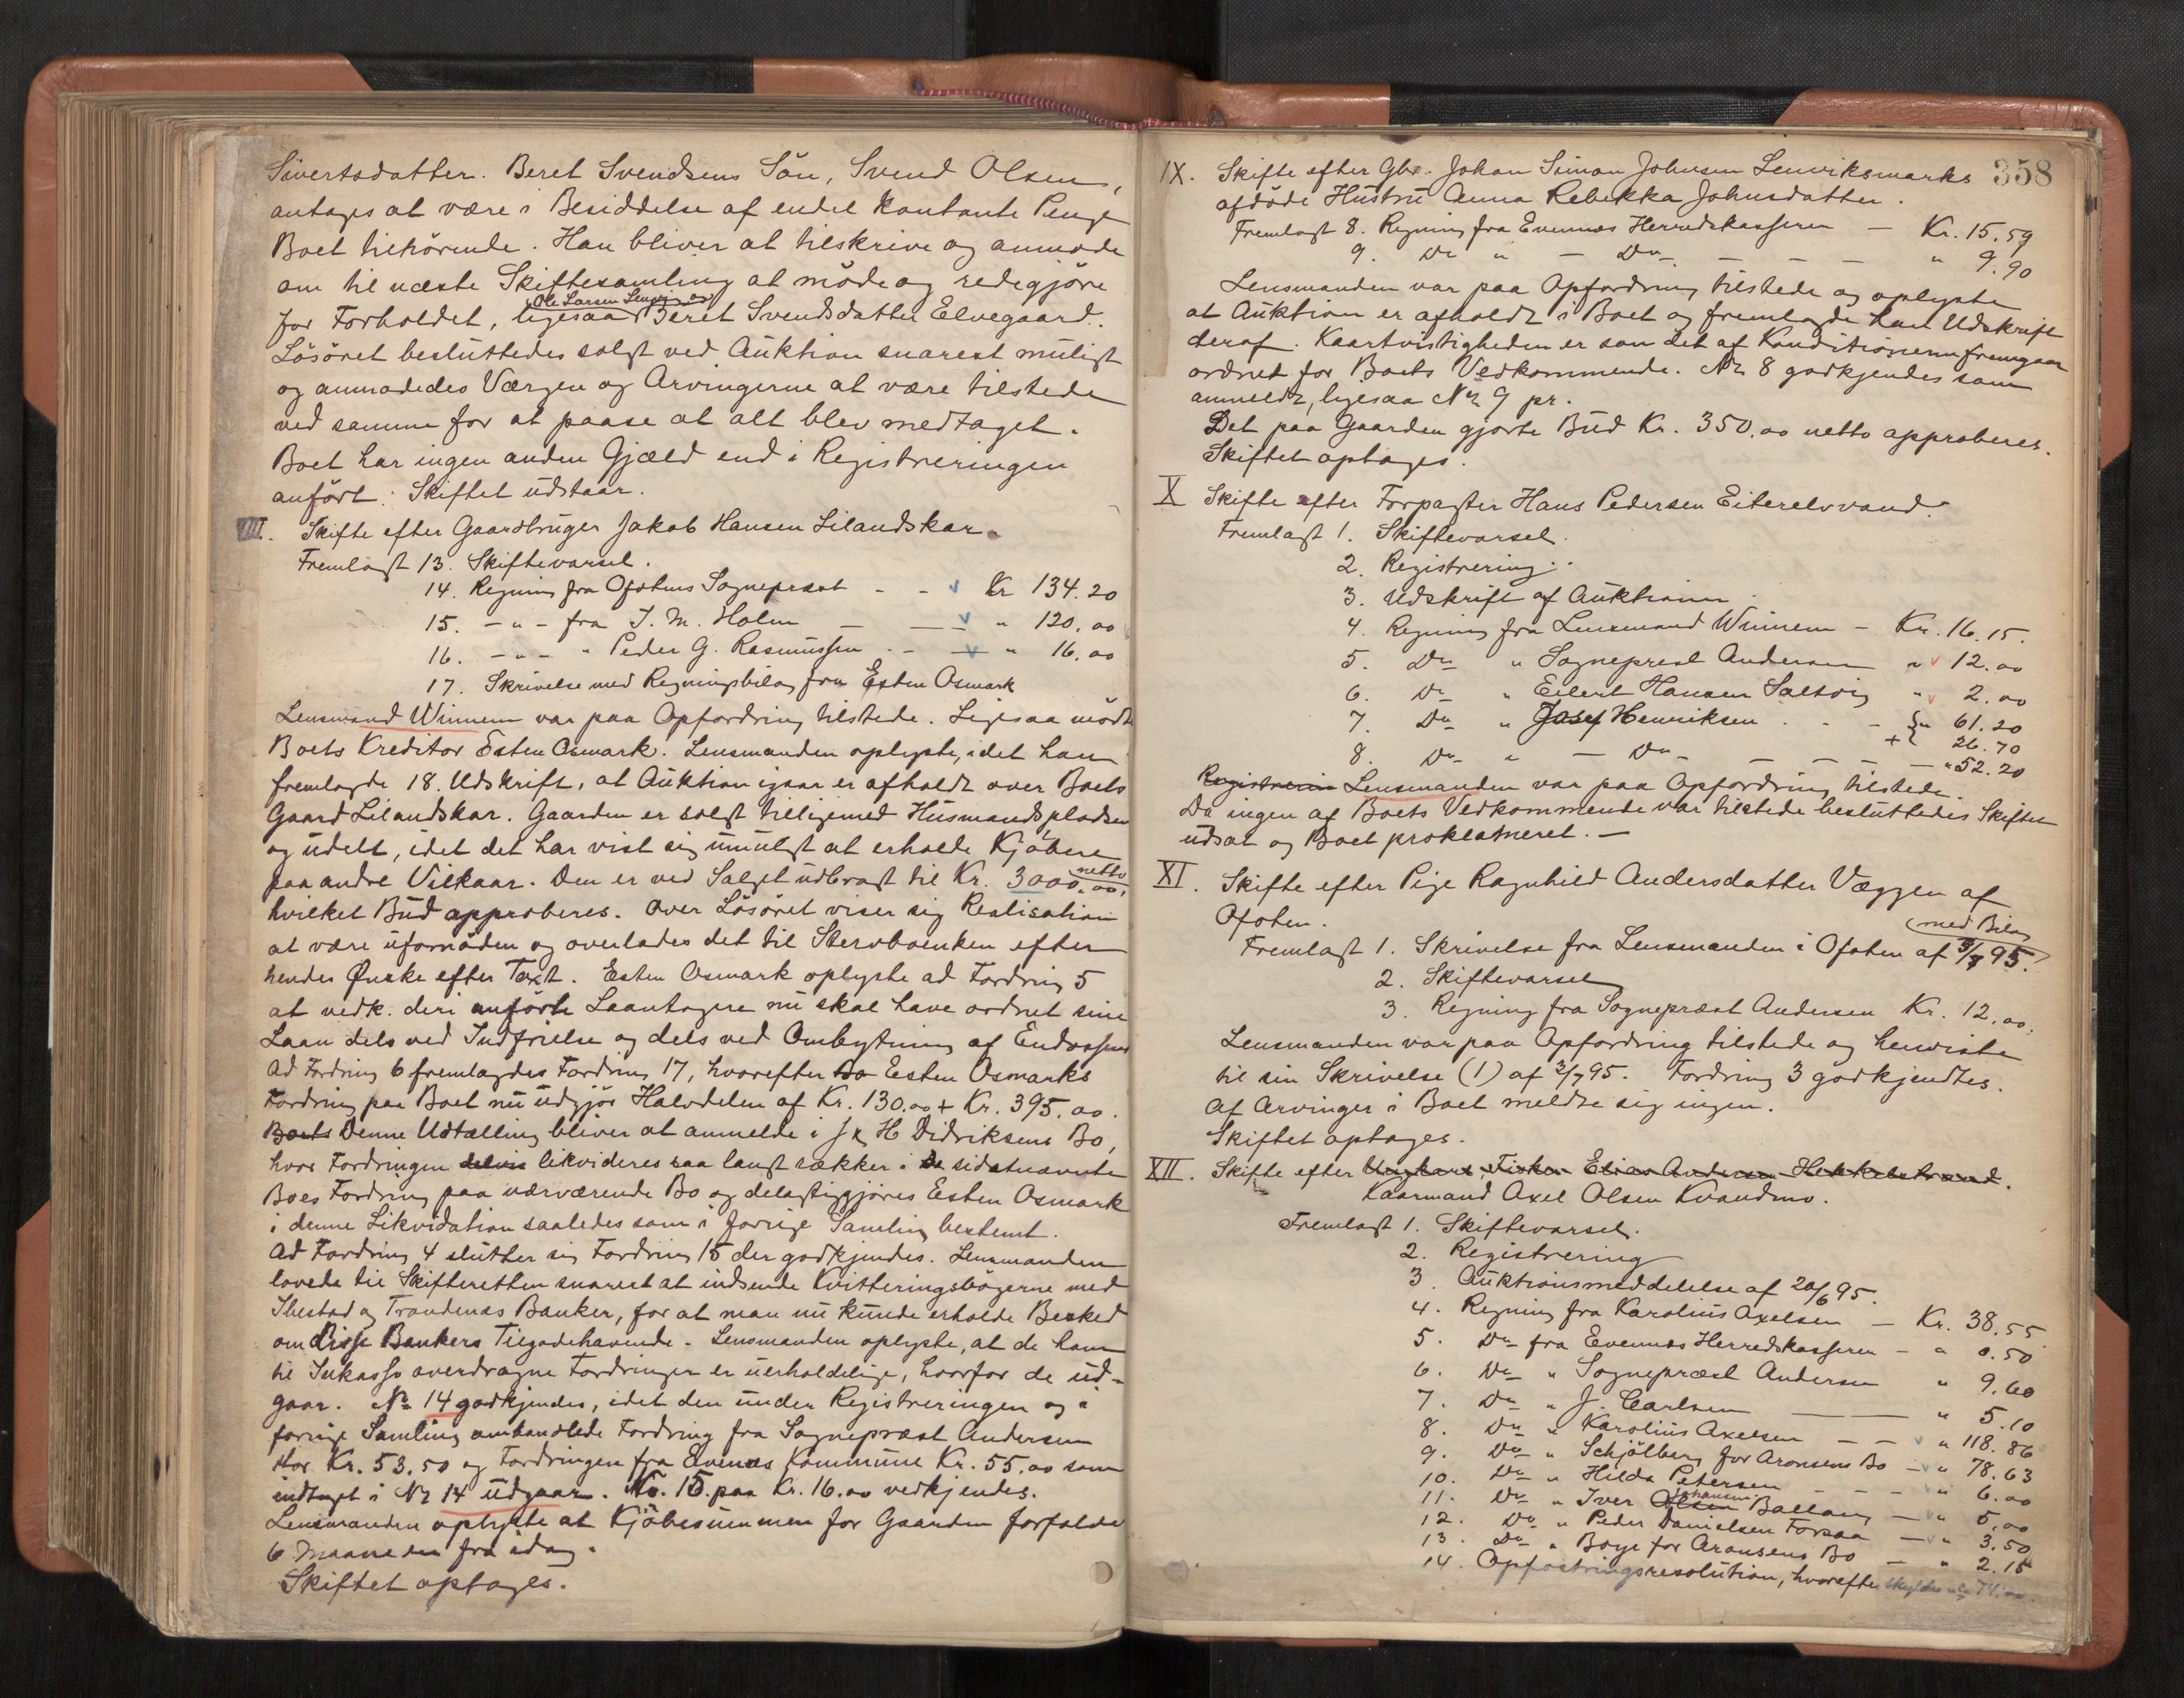 Sivertsdatter. Beret Svendsens Sön, Svend Olsen,
antages at være i Besiddelse af endel kontante Penge
Boet tilhörende. Han bliver at tilskrive og anmode
om til næste Skiftesamling at möde og redegjöre
Ole Larsen Lenvig og
for Forholdet, ligesaa Beret Svendsdatter Elvegaard.
Lösöret besluttedes solgt ved Auktion snarest muligt
og anmodedes Værgen og Arvingerne at være tilstede
ved samme for at paase at alt blev medtaget.
Boet har ingen anden Gjæld end i Registreringen
anfört. Skiftet udstaar.
VIII. Skifte efter Gaardbruger Jakob Hansen Lilandskar.
Fremlagt 13. Skiftevarsel.
14. Regning fra Ofotens Sogneprest - - Kr 134.20
15. - " - fra J. M. Holm — — " 120.00
16. - " - " Peder G. Rasmussen - — " 16.00
17. Skrivelse med Regningsbilag fra Esten Osmark
Lensmand Winnem var paa Opfordring tilstede. Ligesaa mödte
Boets Kreditor Esten Osmark. Lensmanden oplyste, idet han
fremlagde 18. Udskrift, at Auktion igaar er afholdt over Boets
Gaard Lilandskar. Gaarden er solgt tilligemed Husmandspladsen
og udelt, idet det har vist sig umuligt at erholde Kjöbere
paa andre Vilkaar. Den er ved Salget udbragt til Kr. 3000.00, netto
hvilket Bud approberes. Over Lösöret viser sig Realisation
at være ufornöden og overlades det til Stervboenken efter
hendes Ønske efter Taxt. Esten Osmark oplyste ad Fordring 5
at vedk. deri anförte Laantagere nu skal have ordnet sine
Laan dels ved Indfrielse og dels ved Ombytning af Endossent
Ad Fordring 6 fremlagdes Fordring 17, hvorefter Bo Esten Osmarks
Fordring paa Boet nu udgjör Halvdelen af Kr. 130.00 + Kr. 395.00.
Boets Denne Udtælling bliver at anmelde i H Didriksens Bo,
hvor Fordringen delvis likvideres saa langt rækker i sidstnævnte
Boes Fordring paa nærværende Bo og delagtiggjöres Esten Osmark
i denne Likvidation saaledes som i forrige Samling bestemt.
Ad Fordring 4 slutter sig Fordring 15 der godkjendes. Lensmanden
lovede til Skifteretten snarest at indsende Kvitteringsbögerne med
Ibestad og Trondenæs Banker, for at man nu kunde erholde Besked
om disse Bankers Tilgodehavende. Lensmanden oplyste, at de ham
til Inkasso overdragne Fordringer er uerholdelige, hvorfor de ud-
gaar. No 14 godkjendes, idet den under Registreringen og i
forrige Samling omhandlede Fordring fra Sogneprest Andersen
stor Kr. 53.50 og Fordringen fra Evenes Kommune Kr. 55.00 som
indtaget i No 14 udgaar. No. 16 paa Kr. 16.00 vedkjendes.
Lensmanden oplyste at Kjöbesummen for Gaarden forfalder
6 Maaneder fra idag.
Skiftet optages.
358
IX. Skifte efter Gbr. Johan Simon Johnsen Lenviksmarks
afdöde Hustru Anna Rebekka Johnsdatter.
Fremlagt 8. Regning fra Evenes Herredskasserer — Kr. 15.59
9. Do " — Do — — — " 9.90
Lensmanden var paa Opfordring tilstede og oplyste
at Auktion er afholdt i Boet og fremlagde han Udskrift
deraf. Kaartvistigheden er som det af Konditionerne fremgaar
ordnet for Boets Vedkommende. No 8 godkjendes som
anmeldt, ligesaa No 9 pr.
Det paa Gaarden gjorte Bud Kr. 350.00 netto approberes.
Skiftet optages.
X Skifte efter Forpagter Hans Pedersen Eiterelvvand.
Fremlagt 1. Skiftevarsel.
2. Registrering.
3. Udskrift af Auktionen.
4. Regning fra Lensmand Winnem — Kr. 16.15.
5. Do " Sogneprest Andersen " 12.00
6. Do " Eilert Hansen Saltvig " 2.00
7. Do " Josef Henriksen - - - " 61.20
+ 26.70
8. Do " — Do — — — — " 52.20
Registrerin Lensmanden var paa Opfordring tilstede.
Da ingen af Boets Vedkommende var tilstede besluttedes Skiftet
udsat og Boet proklameret. —
XI. Skifte efter Pige Ragnhild Andersdatter Væggen af
Ofoten.
med Bilag
Fremlagt 1. Skrivelse fra Lensmanden i Ofoten af 3/7 95.
2. Skiftevarsel
3. Regning fra Sogneprest Andersen Kr. 12.00.
Lensmanden var paa Opfordring tilstede og henviste
til sin Skrivelse (1) af 3/7 95. Fordring 3 godkjendtes.
Af Arvinger i Boet meldte sig ingen.
Skiftet optages.
XII. Skifte efter Ungkarl, Fisker Elias Andersen Hekkelstrand.
Kaarmand Axel Olsen Kvandmo.
Fremlagt 1. Skiftevarsel.
2. Registrering
3. Auktionsmeddelelse af 20/6 95.
4. Regning fra Karolius Axelsen — Kr. 38.55
5. Do fra Evenæs Herredskasserer - " 0.50
6. Do " Sogneprest Andersen " 9.60
7. Do " J. Carlsen — — " 5.10
8. Do " Karolius Axelsen — — " 118.86
9. Do " Schjölberg for Aronsens Bo — " 78.63
10. Do " Hilda Petersen - - - " 6.00
11. Do " Iver Olsen Johansen Ballang — " 5.00
12. Do " Peder Danielsen Forsaa — " 3.50
13. Do " Boye for Aronsens Bo — " 2.15
14. Opfostringsresolution, hvorefter skyldes 74.00.